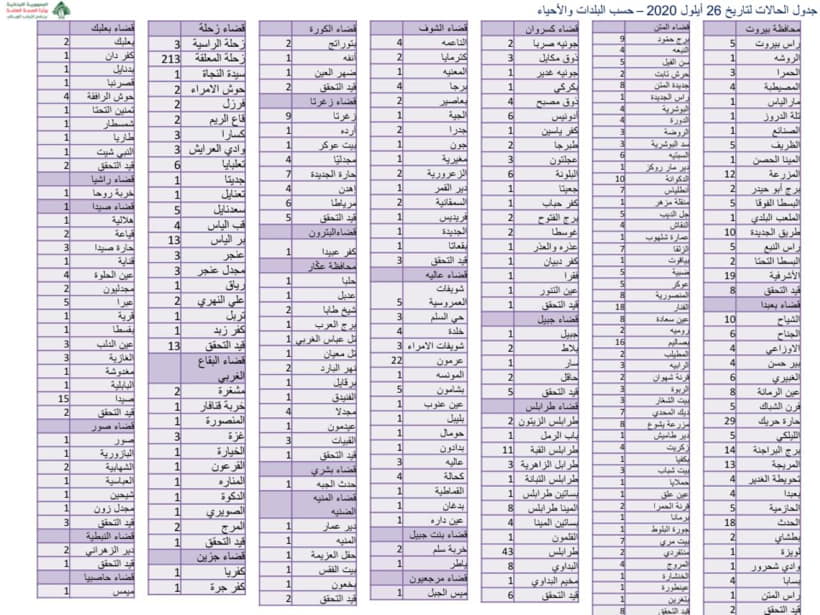 جدول الحالات لتاريخ 26 أيلول 2020 – حسب البلدات والأحياء
الجمهورية اللبنانية
وزارة الصحة العامة
محافظة بيروت
راس بيروت 5
الروشه 1
الحمرا 3
المصيطبة 4
مارالياس 1
تلة الدروز 1
الصنائع 1
الظريف 5
المينا الحصن 1
المزرعة 12
برج أبو حيدر 2
البسطا الفوقا 5
الملعب البلدي 1
طريق الجديدة 10
راس النبع 5
البسطا التحتا 2
الأشرفية 19
قيد التحقق 8
قضاء بعبدا
الشياح 10
الجناح 6
الاوزاعي 4
بير حسن 4
الغبيري 6
عين الرمانة 8
فرن الشباك 5
حارة حريك 29
الليلكي 5
برج البراجنة 14
المريجة 13
تحويطة الغدير 4
بعبدا 4
الحازمية 5
الحدث 18
بطشاي 2
لويزة 1
وادي شحرور 1
بسابا 4
راس المتن 1
قيد التحقق 2
قضاء المتن
برج حمود 9
النبعه 4
سن الفيل 5
حرش تابت 2
جديدة المتن 8
راس الجديدة 1
البوشرية 4
الدورة 4
الروضة 3
سد البوشرية 3
السبتيه 6
دير مار روكز 1
الدكوانة 10
انطلياس 7
منقلة مزهر 1
جل الديب 5
النقاش 4
عمارة شلهوب 1
الزلقا 7
بياقوت 1
ضبية 5
عوكر 5
المنصورية 8
الفنار 18
عين سعادة 8
روميه 2
بصاليم 16
المطيلب 2
الرابيه 3
قرنة شهوان 2
الربوة 3
بيت الشعار 3
ديك المحدي 7
مزرعة يشوع 8
دير طاميش 1
زكريت 4
بكفيا 1
بيت شباب 3
حملايا 1
عين علق 1
قرنة الحمرا 2
برمانا 1
جورة البلوط 1
بيت مري 7
منتفردي 2
المروج 4
الخنشارة 1
عينطورة 1
بتغرين 1
قيد التحقق 8
قضاء كسروان
جونيه صربا 2
ذوق مكايل 3
جونيه غدير 1
بكركي 1
ذوق مصبح 4
أدونيس 6
كفر ياسين 1
طبرجا 2
عجلتون 3
البلونة 6
جعيتا 1
كفر حباب 1
برج الفتوح 2
غوسطا 2
عذره والعذر 1
كفر دبيان 1
فقرا 1
عين التنور 1
قيد التحقق 1
قضاء جبيل
جبيل 1
بلاط 2
سار 1
حاقل 2
قيد التحقق 5
قضاء طرابلس
طرابلس الزيتون 2
باب الرمل 1
طرابلس القبة 11
طرابل الزاهرية 3
طرابلس التبانة 1
بساتين طرابلس 1
المينا طرابلس 8
بساتين المينا 4
القلمون 1
طرابلس 43
البداوي 8
مخيم البداوي 1
قيد التحقق 6
قضاء الشوف
الناعمه 4
كترمايا 2
المعنيه 1
برجا 4
بعاصير 2
الجية 1
جدرا 2
جون 1
مغيرية 1
الزعرورية 2
دير القمر 1
السمقانية 2
فريديس 1
الجديدة 1
بقعاتا 1
قيد التحقق 3
قضاء عاليه
شويفات
العمروسية 5
حي السلم 3
خلدة 4
شويفات الامراء 3
عرمون 22
المونسه 1
بشامون 5
عين عنوب 1
بليبل 1
حومال 1
بدادون 1
عاليه 3
كحالة 4
القماطية 1
بدغان 1
عين داره 1
قضاء بنت جبيل
خربة سلم 2
ياطر 1
قضاء مرجعيون
ميس الجبل 1
قضاء الكورة
بتوراتج 2
أنفه 1
ضهر العين 1
قيد التحقق 2
قضاء زغرتا
زغرتا 9
أرده 1
بيت عوكر 1
مجدليّا 4
حارة الجديدة 7
إهدن 4
مرياطا 6
قيد التحقق 5
قضاءالبترون
كفر عبيدا 1
محافظة عكّار
حلبا 1
عدبل 1
شيخ طابا 2
برج العرب 1
تل عباس الغربي 1
تل معيان 1
نهر البارد 2
برقايل 1
الفنيدق 1
مجدلا 4
عيدمون 1
القبيات 3
قيد التحقق 1
قضاء بشري
حدث الجبه 1
قضاء المنيه
الضنيه
دير عمار 1
المنيه 1
حقل العزيمة 1
بيت الفقس 1
بخعون 1
قيد التحقق 2
قضاء زحلة
زحلة الراسية 3
زحلة المعلقة 213
سيدة النجاة 1
حوش الامراء 2
فرزل 2
قاع الريم 2
كسارا 3
وادي العرايش 3
تعلبايا 6
جديتا 1
تعنايل 1
سعدنايل 5
قب الياس 4
بر الياس 13
عنجر 3
مجدل عنجر 3
رياق 1
علي النهري 2
تربل 1
كفر زبد 1
قيد التحقق 13
قضاء البقاع
الغربي
مشغرة 2
خربة قنافار 1
المنصورة 1
غزة 3
الخيارة 1
القرعون 1
المناره 1
الدكوة 1
الصويري 1
المرج 2
قيد التحقق 1
قضاء جزين
كفريا 1
كفر جرة 1
قضاء بعلبك
بعلبك 2
كفر دان 1
بدنايل 1
قصرنبا 1
حوش الرافقة 4
تمنين التحتا 1
شمسطار 1
طاريا 1
النبي شيت 1
قيد التحقق 2
قضاء راشيا
خربة روحا 1
قضاء صيدا
هلالية 1
قياعة 2
حارة صيدا 3
قناية 1
عين الحلوة 4
مجدليون 2
عبرا 5
قرية 1
بقسطا 1
عين الدلب 3
الغازية 3
مغدوشة 1
البابلية 1
صيدا 15
قيد التحقق 2
قضاء صور
صور 1
البازورية 1
الشهابية 2
العباسية 1
شيحين 1
مجدل زون 1
قيد التحقق 3
قضاء النبطية
دير الزهراني 2
قيد التحقق 1
قضاء حاصبيا
ميمس 1